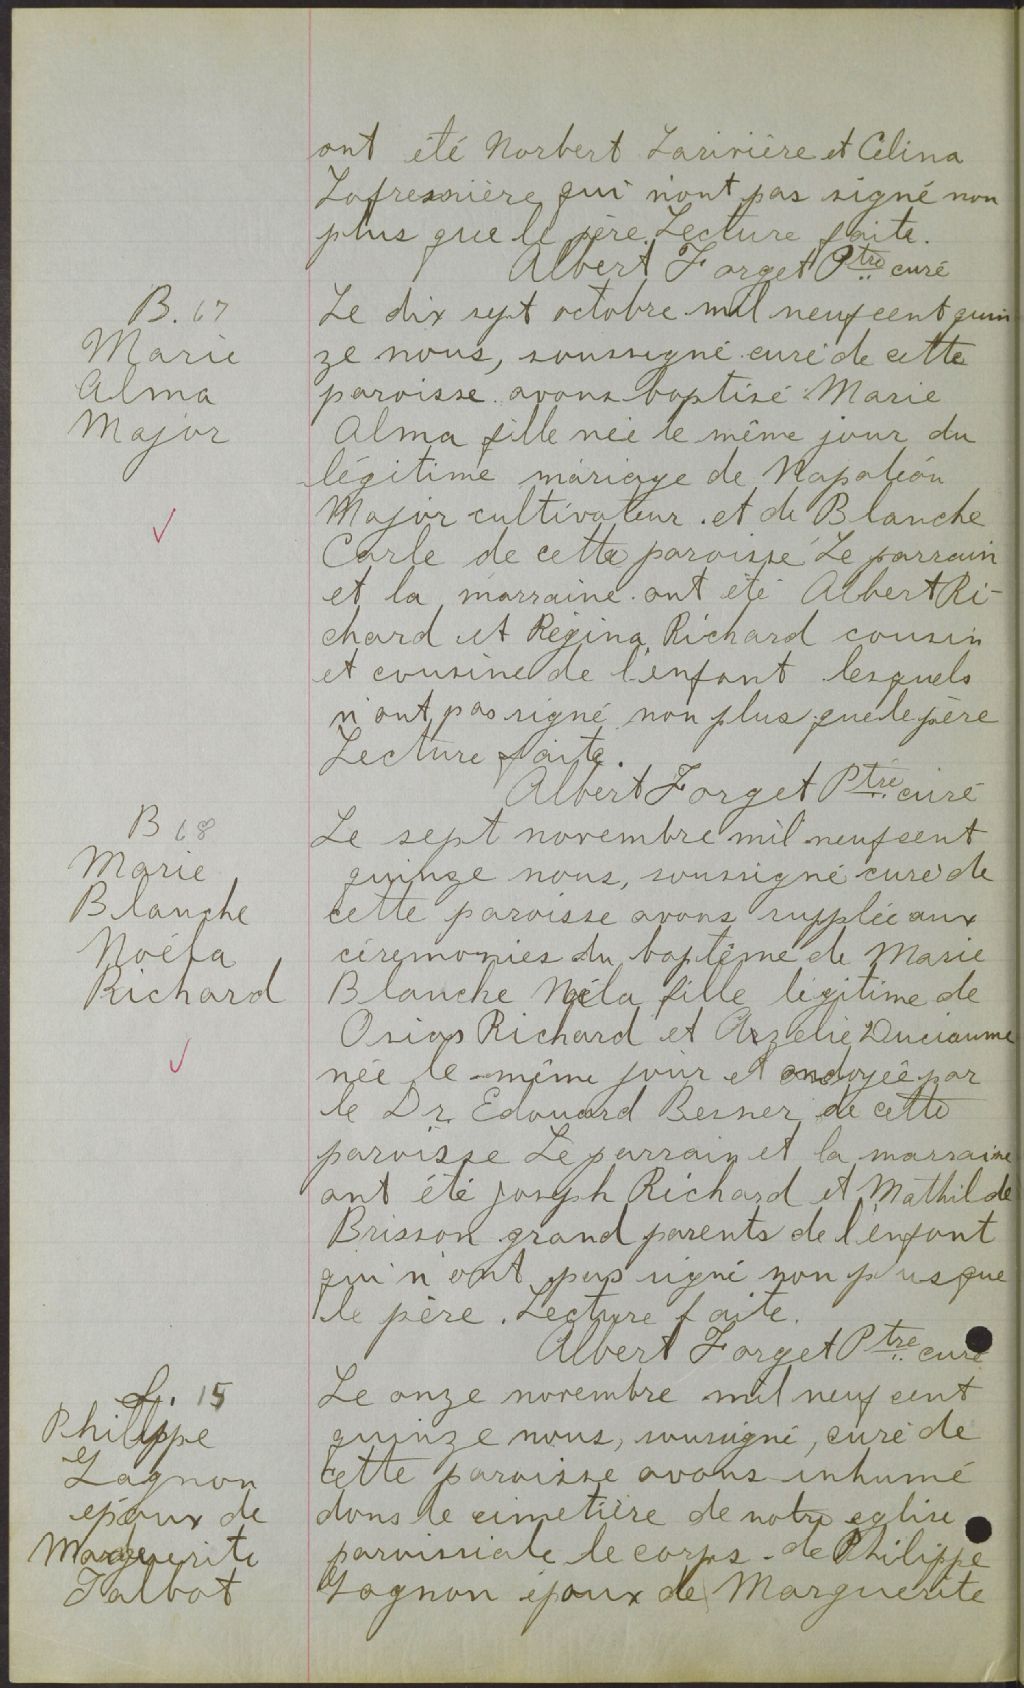 ont été Norbert Larivière et Célina
Lafresnière qui n'ont pas signé non
plus que le père. Lecture faite.
Albert Forget Ptre curé
B. 67
Marie
Alma
Major
Le dix sept octobre mil neuf cent quin
ze nous, soussigné curé de cette
paroisse avons baptisé Marie
Alma fille née le même jour du
légitime mariage de Napoléon
Major cultivateur et de Blanche
Carle de cette paroisse Le parrain
et la marraine ont été Albert Ri-
chard et Régina Richard cousin
et cousine de l'enfant lesquels
n'ont pas signé non plus que le père
Lecture faite.
Albert Forget Ptre curé
B 68
Marie
Blanche
Noéla
Richard
Le sept novembre mil neuf cent
quinze nous, soussigné curé de
cette paroisse avons supplée aux
céremonies du baptême de Marie
Blanche Noéla fille légitime de
Osias Richard et Arzelie Duciaume
née le même jour et ondoyée par
le Dr. Edouard Besner de cette
paroisse Le parrain et la marraine
ont été Joseph Richard et Mathilde
Brisson grand parents de l'enfant
qui n'ont pas signé non plus que
le père. Lecture faite.
Albert Forget Ptre curé
S. 15
Philippe
Gagnon
époux de
Marguerite
Talbot
Le onze novembre mil neuf cent
quinze nous, soussigné, curé de
cette paroisse avons inhumé
dans le cimetière de notre église
paroissiale le corps de Philippe
Gagnon époux de Marguerite